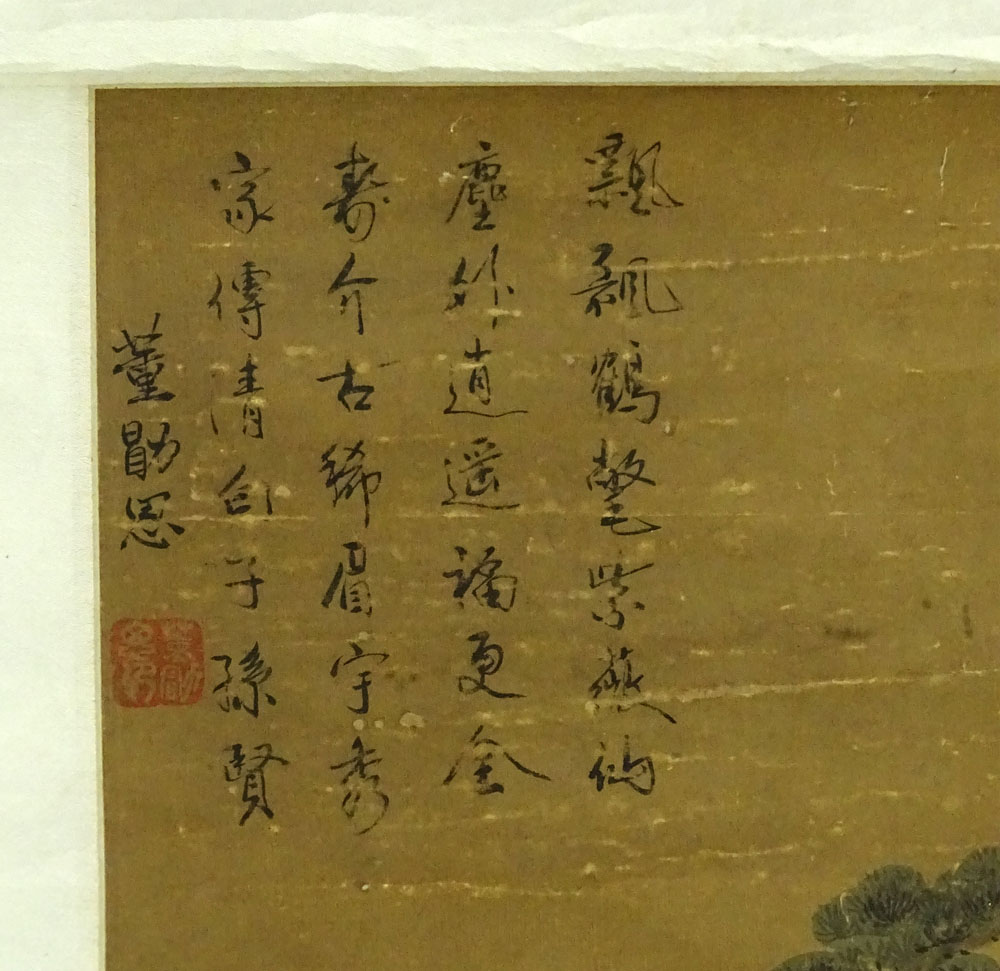 飄飄鶴氅紫燕僊
塵外逍遥福更全
壽介古稀眉宇秀
家傳清白子孫賢
董勖恩